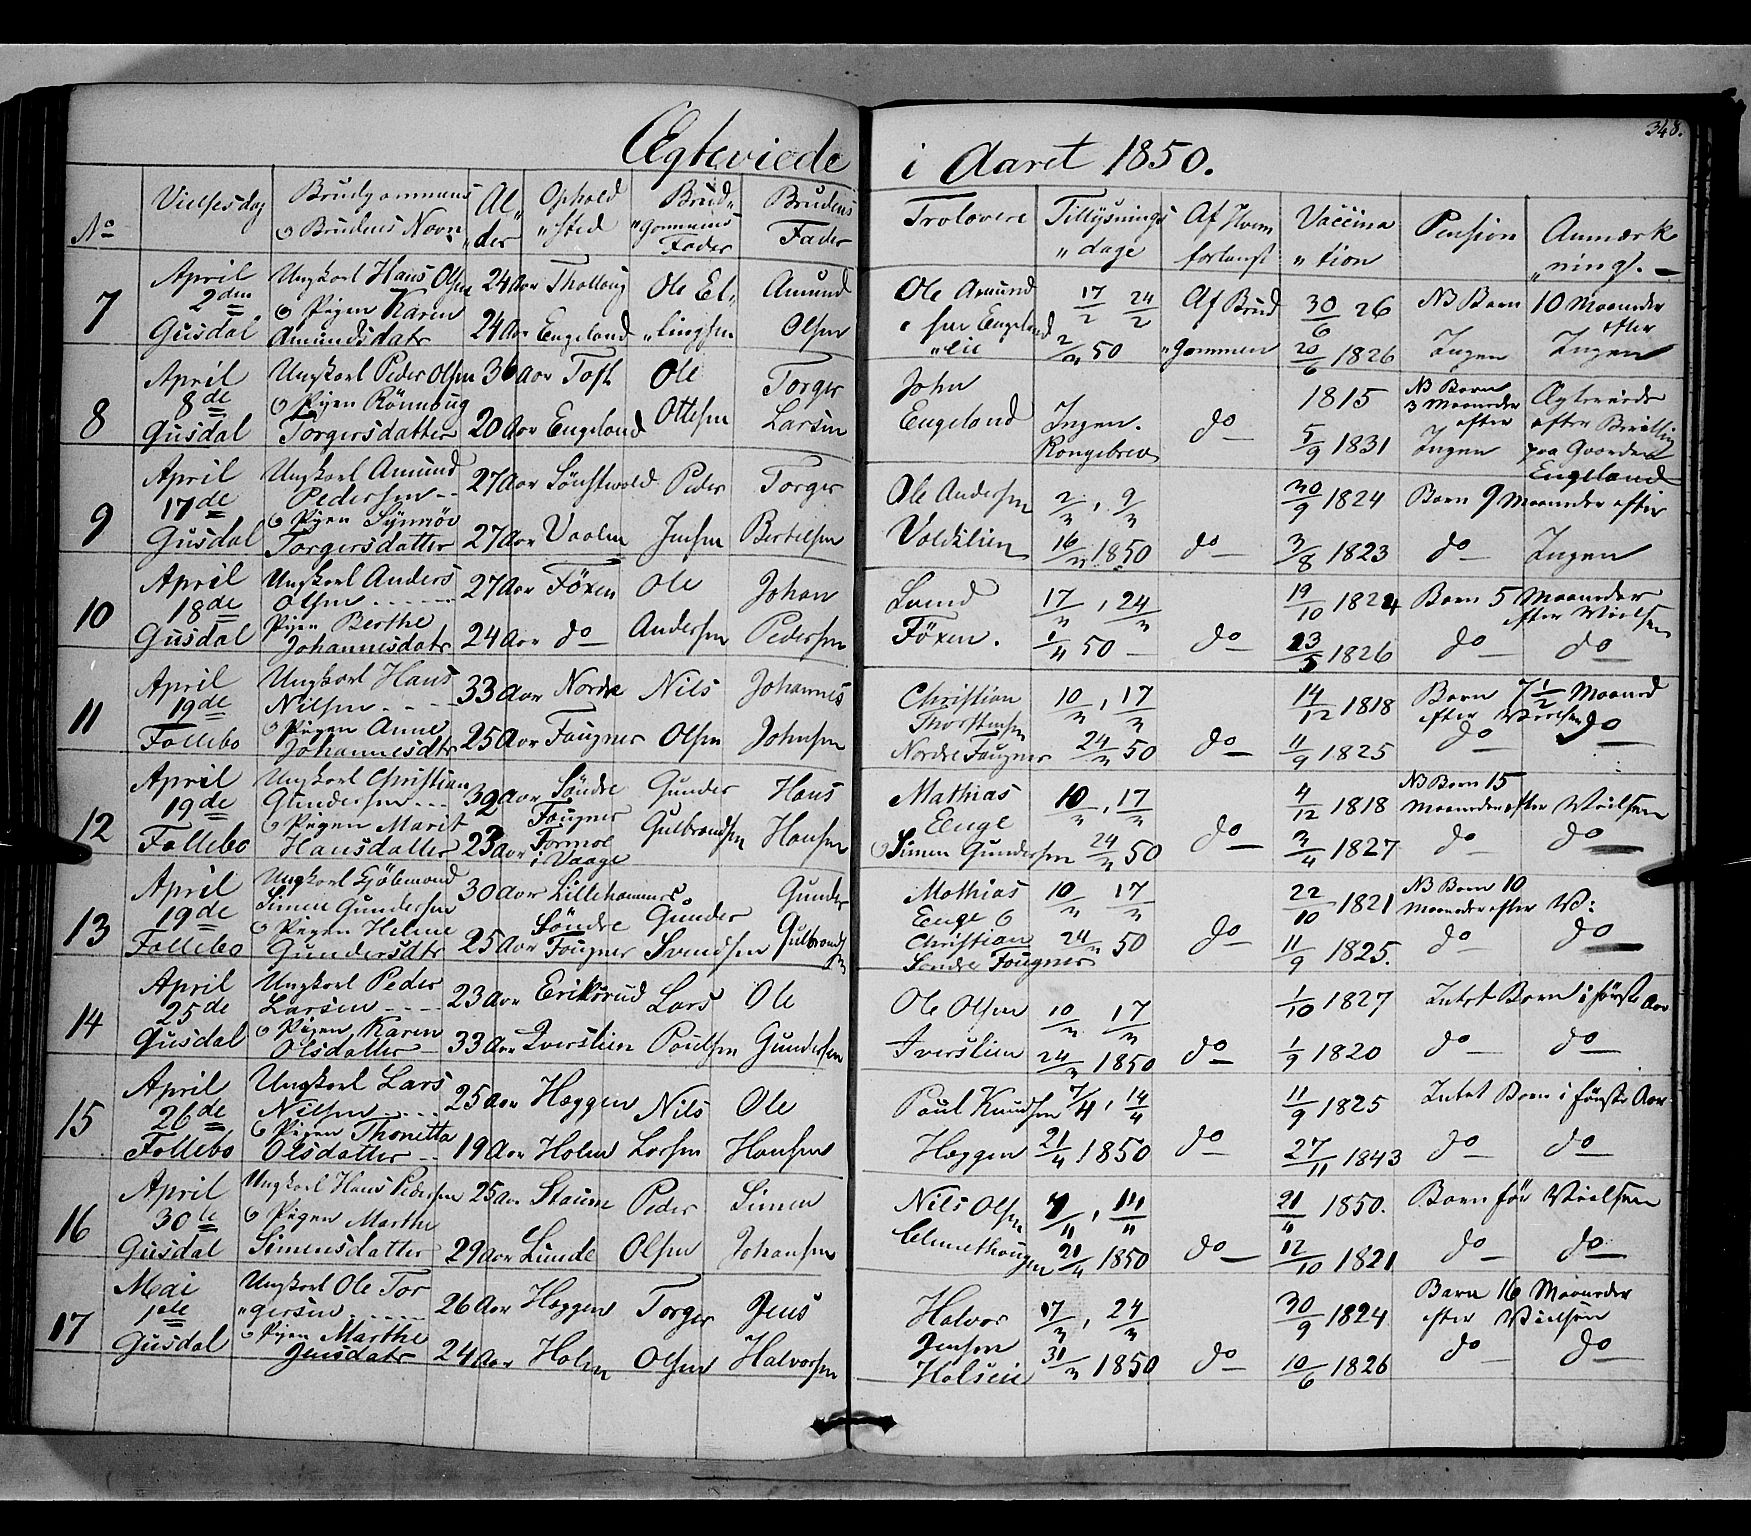 348.
Ægteviede i Aaret 1850.
No Vielsesdag Brudgommens & Brudens Navn Al„der Ophold„sted Brud„gommens Fader Brudens Fader Trolovere Tillysnings„dage Af Hvem forlangt Vaccina„tion Pension Anmærk„ning.
7 April 2den Gusdal
Ungkarl Hans Olsen 24 Aar
& Pigen Karen Amundsdatr 24 Aar Engeland
Ole El„lingsen
Amund Olsen
Ole Amundsen Engeland„eie
17/2 24/2 2/4 50
Af Brud„gommen
30/6 26
20/6 1826
NB Barn 10 Maaneder efter
Ingen Ingen
8 April 8de Gusdal
Ungkarl Peder Olsen 36 Aar Toft
& Pigen Rönnoug Torgersdatter 20 Aar Engeland
Ole Ottesen
Torger Larsen
John Engeland
Ingen. Kongebrev
do
1815
5/9 1831
NB Barn 3 Maaneder efter
Ingen
Ægteviede efter Bevilling paa Gaarden Engeland
9 April 17de Gusdal
Ungkarl Amund Pedersen 27 Aar
& Pigen Synnöv Torgersdatter 27 Aar
Peder Jensen
Torger Bertelsen
Ole Andersen
2/3, 9/3 16/3 1850
do
30/9 1824
3/8 1823
Barn 9 Maaneder efter
do Ingen
10 April 18de Gusdal
Ungkarl Anders Olsen 27 Aar Föxen
Pigen Berthe Johannesdatr 24 Aar do
Ole Andersen
Johan Pedersen
Föxen.
17/3, 24/3 1/4 50
do
19/10 1824
23/5 1826
Barn 5 Maaneder efter Vielsen
do do
11 April 19de Follebo
Ungkarl Hans Nilsen 33 Aar Nordre
& Pigen Anne Johannesdtr 25 Aar Fougner
Nils Olsen
Johannes Johnsen
Christian Thorstensen Nordre Fougner
10/3, 17/3 24/3 50
do
14/12 1818
11/9 1825
Barn 7 1/2 Maaned efter Vielsen
do do
12 April 19de Follebo
Ungkarl Christian Gundersen 32 Aar Söndre Fougner
& Pigen Marit Hansdatter 23 Aar Formoe i Vaage
Gunder Gulbrandsen
Hans Hansen
Mathias Enge & Simen Gundersen
10/3, 17/3 24/3 50
do
4/12 1818
3/4 1827
NB Barn 15 Maaneder efter Vielsen
do do
13 April 19de Follebo
Ungkarl Simen Gundersen 30 Aar Lillehammer
& Pigen Helene Gundersdtr 25 Aar Söndre Fougner
Gunder Svendsen
Gunder Gulbrandsen
Mathias Enge & Christian Söndre Fougner
10/3 17/3 24/3 50
do
22/10 1821
11/9 1825.
NB Barn 10 Maaneder efter V:
do do
14 April 25de Gusdal
Ungkarl Peder Larsen 23 Aar Eriksrud
& Pigen Karen Olsdatter 33 Aar Iverslien
Lars Poulsen
Ole Gundersen
Ole Olsen Iverslien
10/3 17/3 24/3 1850
do
1/10 1827
1/9 1820
Intet Barn i förste Aar
do do
15 April 26de Follebo
Ungkarl Lars Nilsen 25 Aar Haggen
& Pigen Thonetta Olsdatter 19 Aar Holen
Nils Larsen
Ole Hansen
Paul Knudsen Haggen
7/4, 14/4 21/4 1850
do
11/9 1825
27/11 1843
Intet Barn i förste Aar
do do
16 April 30te Gusdal
Ungkarl Hans Pedersen 25 Aar
& Pigen Marthe Simensdatter 29 Aar Lunde
Peder Olsen
Simen Johansen
Nils Olsen
7/4, 14/4 21/4 1850
do
21/4 1850.
12/10 1821
Barn för Vielsen
do do
17 Mai 1ste Gusdal
Ungkarl Ole Tor„gersen 26 Aar Haggen
& Pigen Marthe Jensdatr 24 Aar Holen
Torger Olsen
Jens Halvorsen
Halvor Jensen Holseie
17/3, 24/3 31/3 1850
do
30/9 1824
10/6 1826
Barn 16 Maaneder efter Vielsen
do do